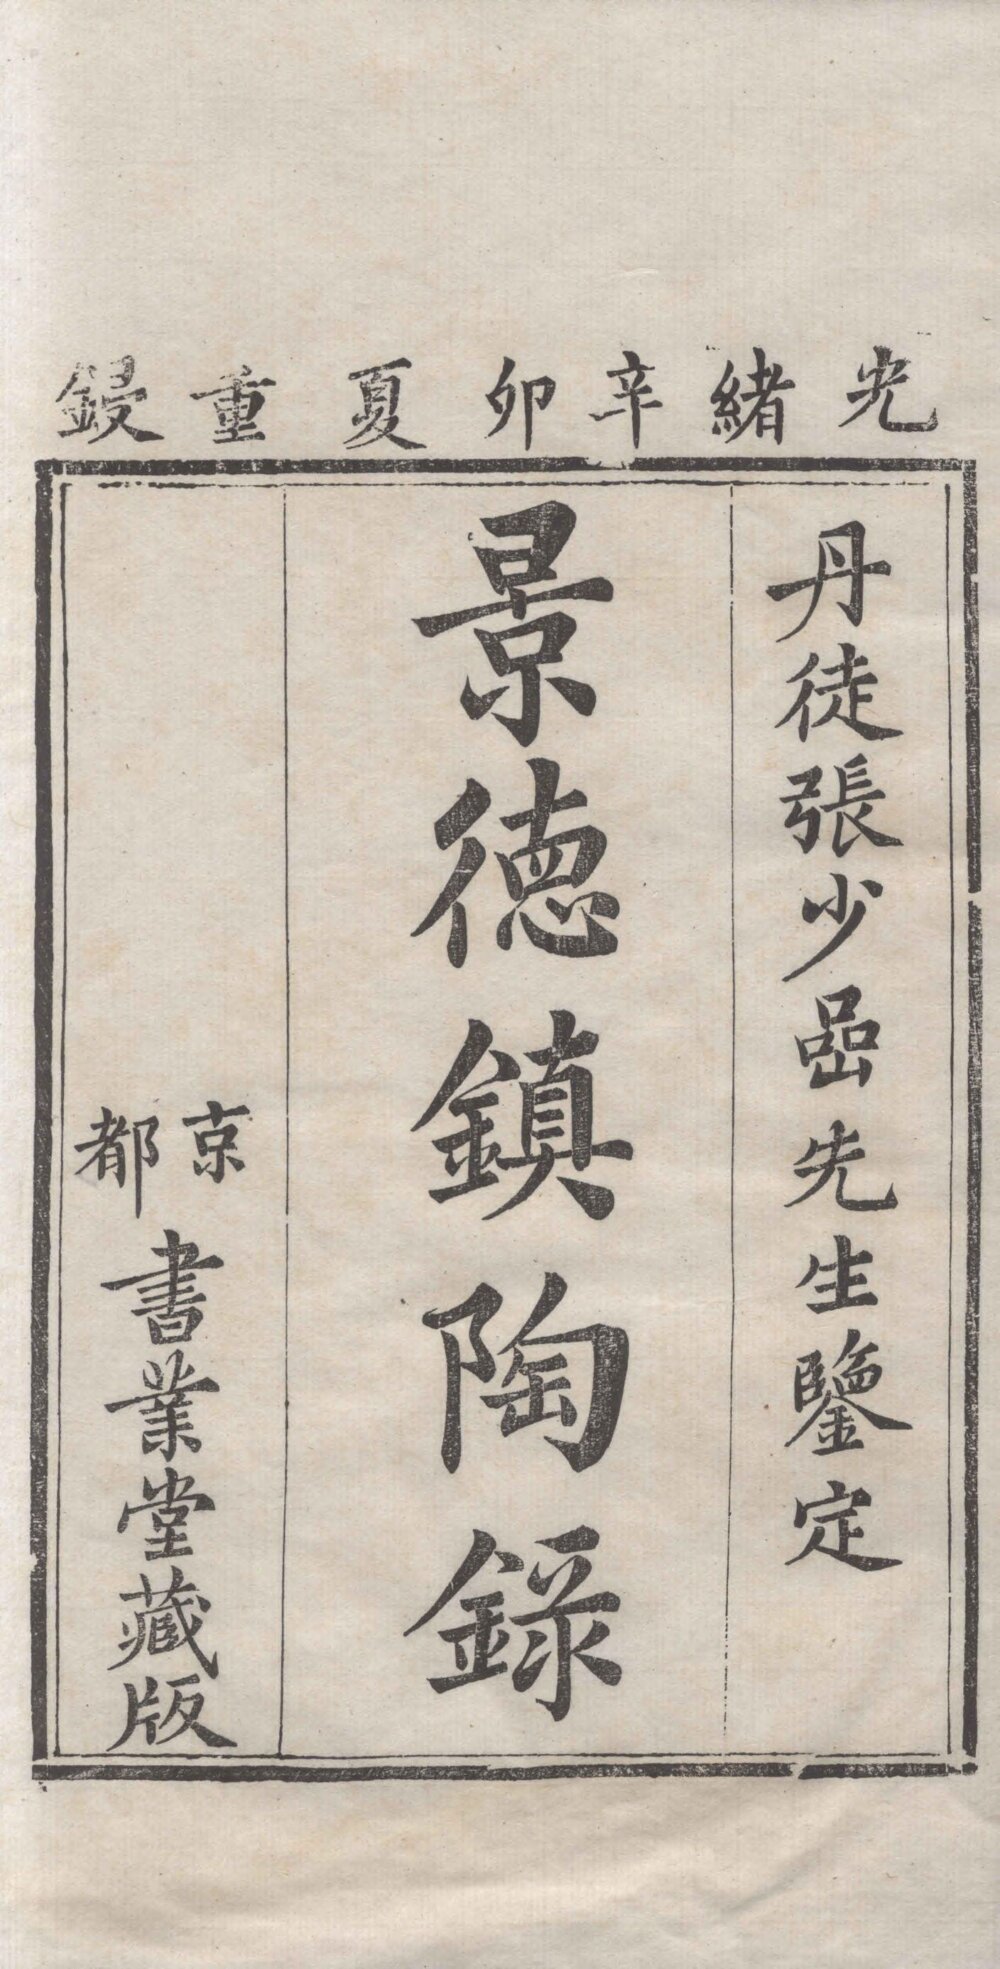 光緒辛卯夏重鋟
丹徒張少嵒先生鑒定
景德鎮陶錄
京都
書業堂藏版